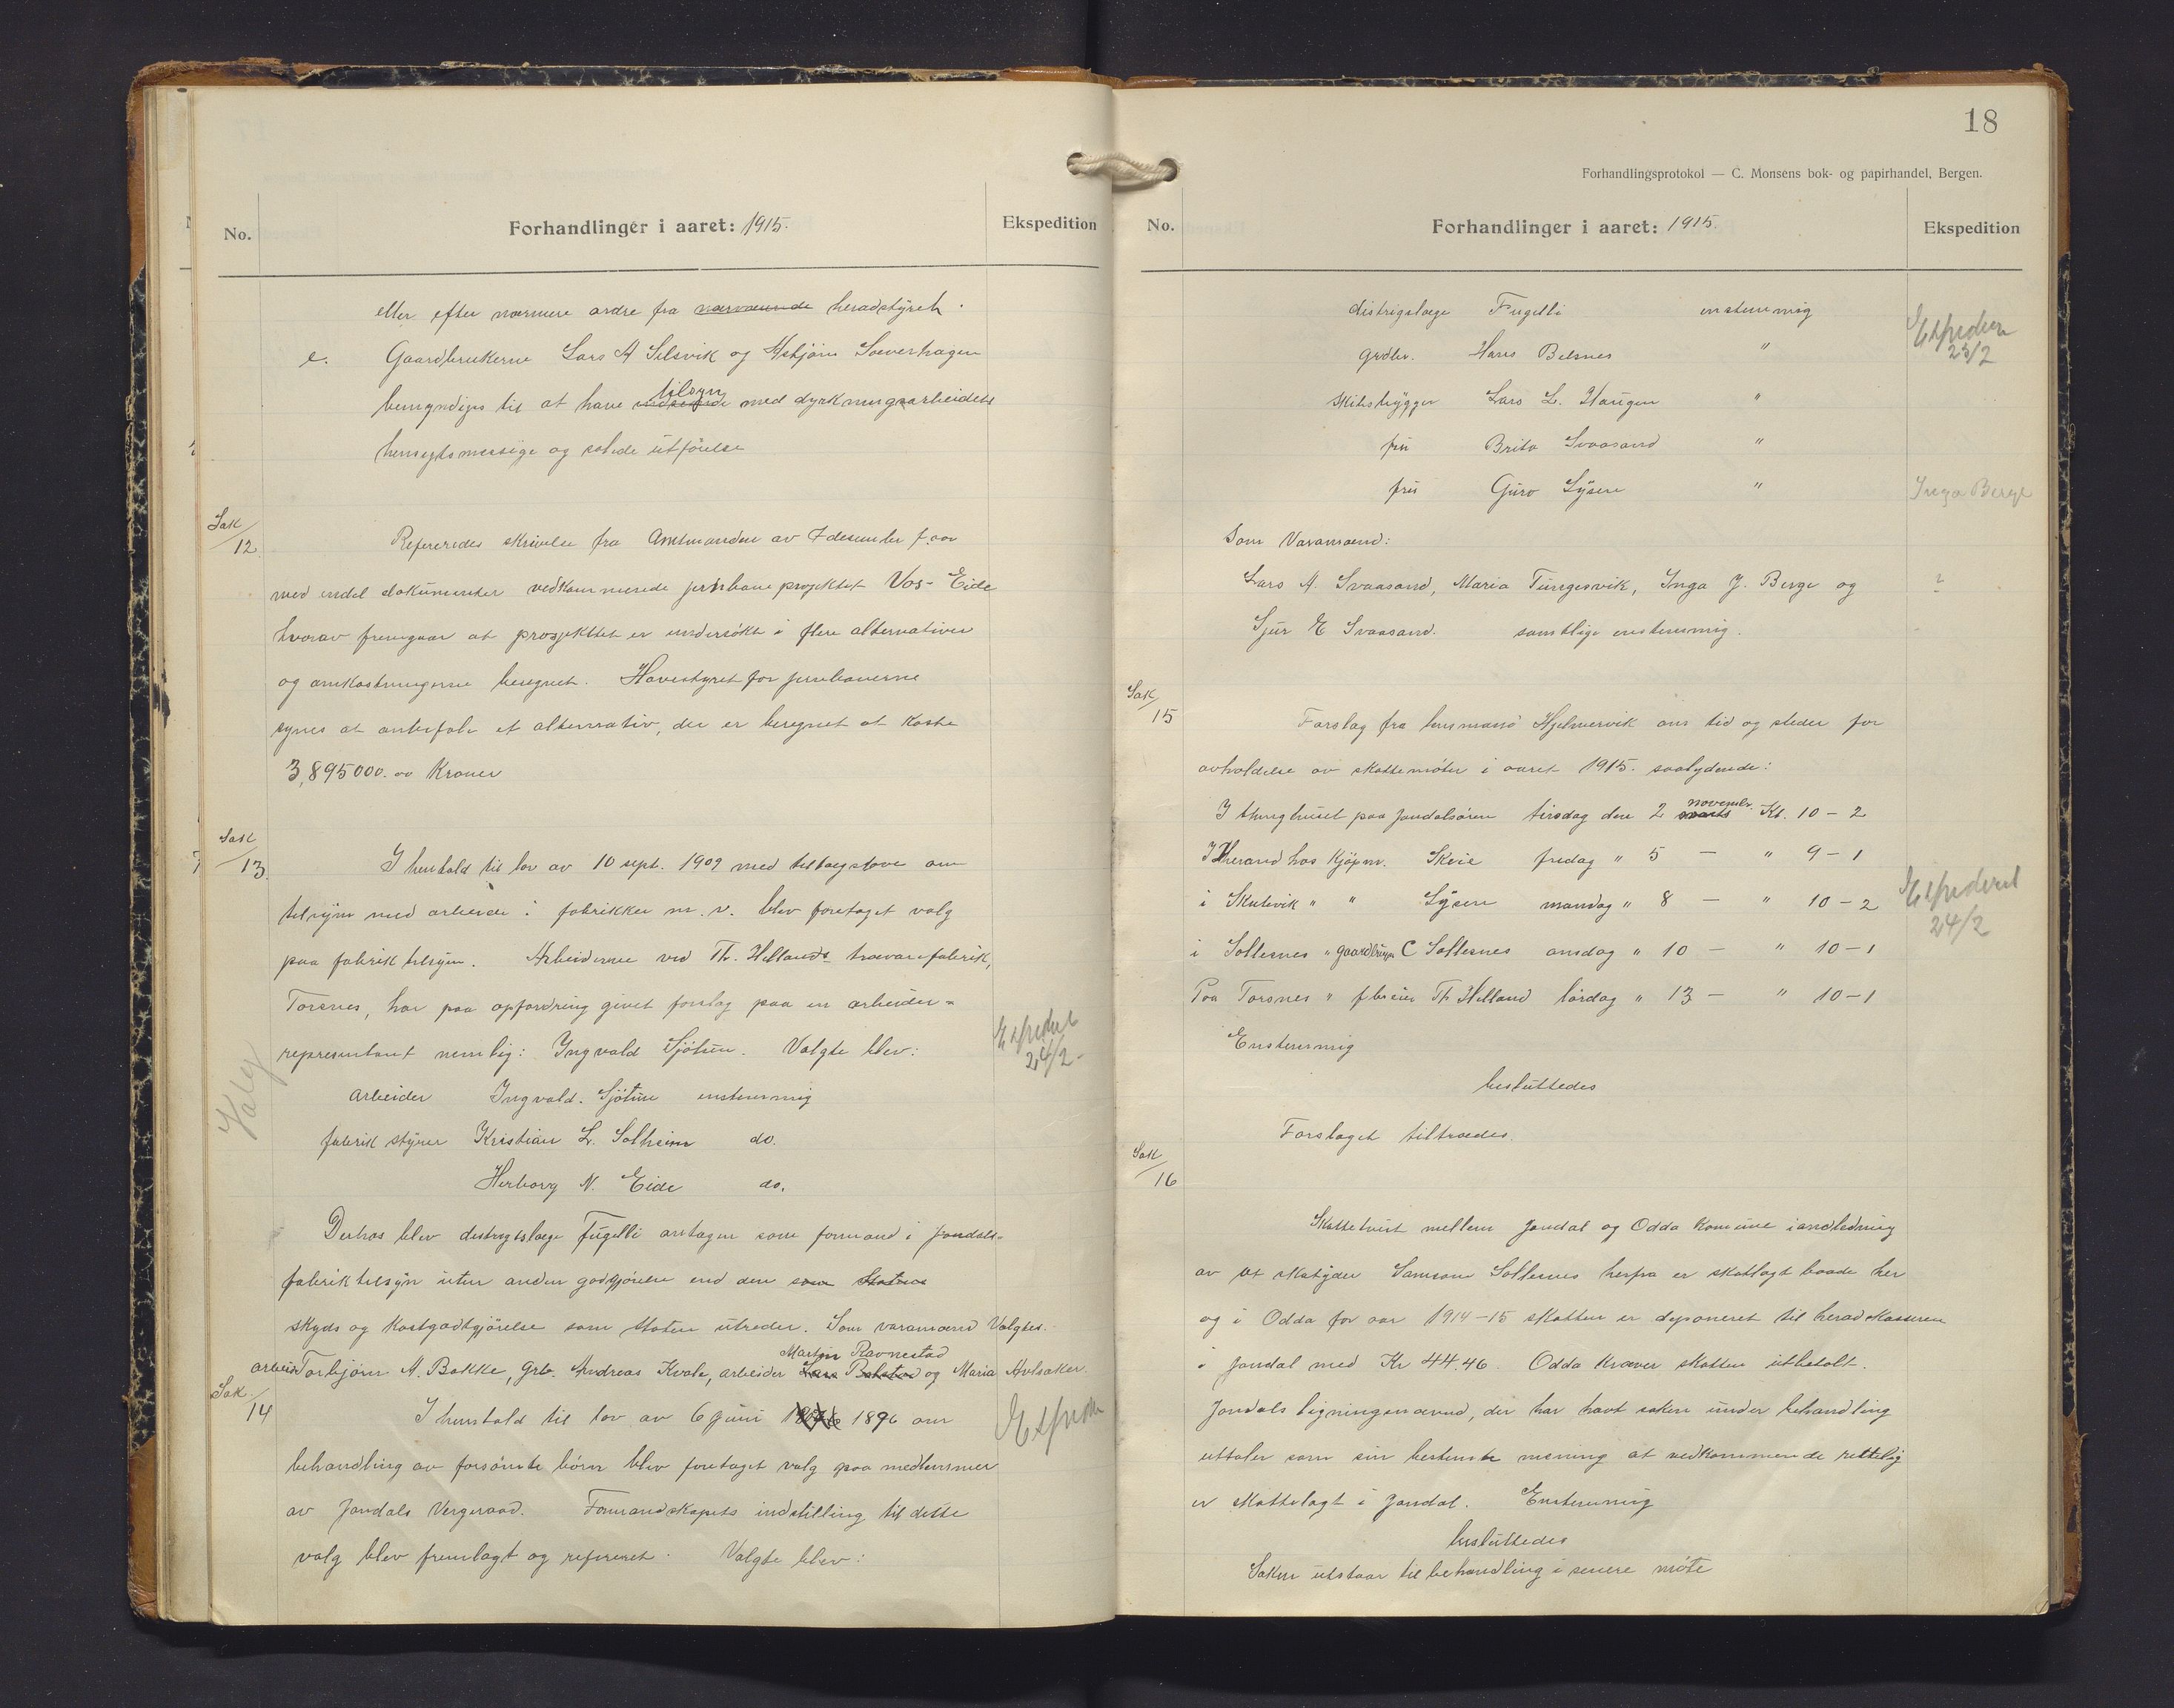 No.
Forhandlinger i aaret: 1915.
Ekspedition
eller efter nærmere ordre fra nærværende heradstyret.
e. Gaardbrukerne Lars A Selsvik og Asbjørn Saeverhagen
bemyndiges til at have indseende tilsyn med dyrkningsarbeidets
hensigtsmessige og solide utförelse
Sak/12.
Refereredes skrivelse fra Amtmanden av 7 desember f. aar
med endel dokumenter vedkommende jernbaneprojektet Vos-Eide
hvorav fremgaar at prosjektet er undersökt i flere alternativer
og omkostningerne beregnet. Hovedstyret for jernbanerne
synes at anbefale et alternativ, der er beregnet at koste
3,895000.00 Kroner
Sak/13.
I henhold til lov av 10 sept. 1909 med tillægslove om
tilsyn med arbeide i fabrikker m. v. blev foretaget valg
paa fabriktilsyn. Arbeiderne ved Th. Hellands trævarefabrik,
Torsnes, har paa opfordring givet forslag paa en arbeider-
representant nemlig: Ingvald Sjötun. Valgte blev:
Ekspedert
24/2-
Valg
Arbeider Ingvald Sjötun enstemmig
fabrik styrer Kristian L. Solheim do.
Herborg N. Eide do.
Derhos blev distrigtslæge Fugelli antagen som formand i Jondals-
fabriktilsyn uten anden godtgjörelse end den som Statens
skyds og kostgodtgjörelse som staten utreder. Som varamænd Valgtes.
Martin Ravnestad
arbeid Torbjörn A. Bakke, Grb. Andreas Kvale, arbeider og Maria Avlsaker.
Sak/14
I henhold til lov av 6 juni 1896 om
behandling av forsömte börn blev foretaget valg paa medlemmer
av Jondals Vergeraad. Formandskapets indstilling til dette
valg blev fremlagt og referert. Valgte blev:
18
Forhandlingsprotokol — C. Monsens bok- og papirhandel, Bergen.
No.
Forhandlinger i aaret: 1915.
Ekspedition
distrigslæge Fugelli enstemmig
Ekspedert
23/2
grdbr. Hans Belsnes "
Skibsbygger Lars L. Haugen "
fru Brita Svaasand "
fru Guro Lysen "
Inga Berge
Som Varamænd:
Lars A. Svaasand, Maria Tungesvik, Inga J. Berge og
?
Sjur E Svaasand. samtlige enstemmig.
Sak/15
Forslag fra lensmand Hjelmervik om tid og steder for
avholdelse av skattemöter i aaret 1915. saalydende:
I thinghuset paa Jondalsören tirsdag den 2 marts novembr. Kl. 10-2
I Herand hos Kjöpm. Skeie fredag " 5 — " 9-1
i Skutevik " " Lysen mandag " 8 — " 10-2
Ekspedert
24/2
i Solesnes " gaardbruger C Solesnes onsdag " 10 — " 10-1
Paa Torsnes " Th Helland lördag " 13 — " 10-1
Enstemmig
besluttedes
Forslaget tiltrædes.
Sak/16
Skattetvist mellem Jondal og Odda Komune i anledning
av at skatyder Samson Solesnes herfra er skatlagt baade her
og i Odda for aar 1914-15 skatten er deponeret til heradskasseren
i Jondal med Kr 44.46. Odda kræver skatten utbetalt.
Jondals ligningsnævnd, der har havt saken under behandling
uttaler som sin bestemte mening at vedkommende rettelig
er skattelagt i Jondal. Enstemmig
besluttedes
Saken utstaar til behandling i senere möte